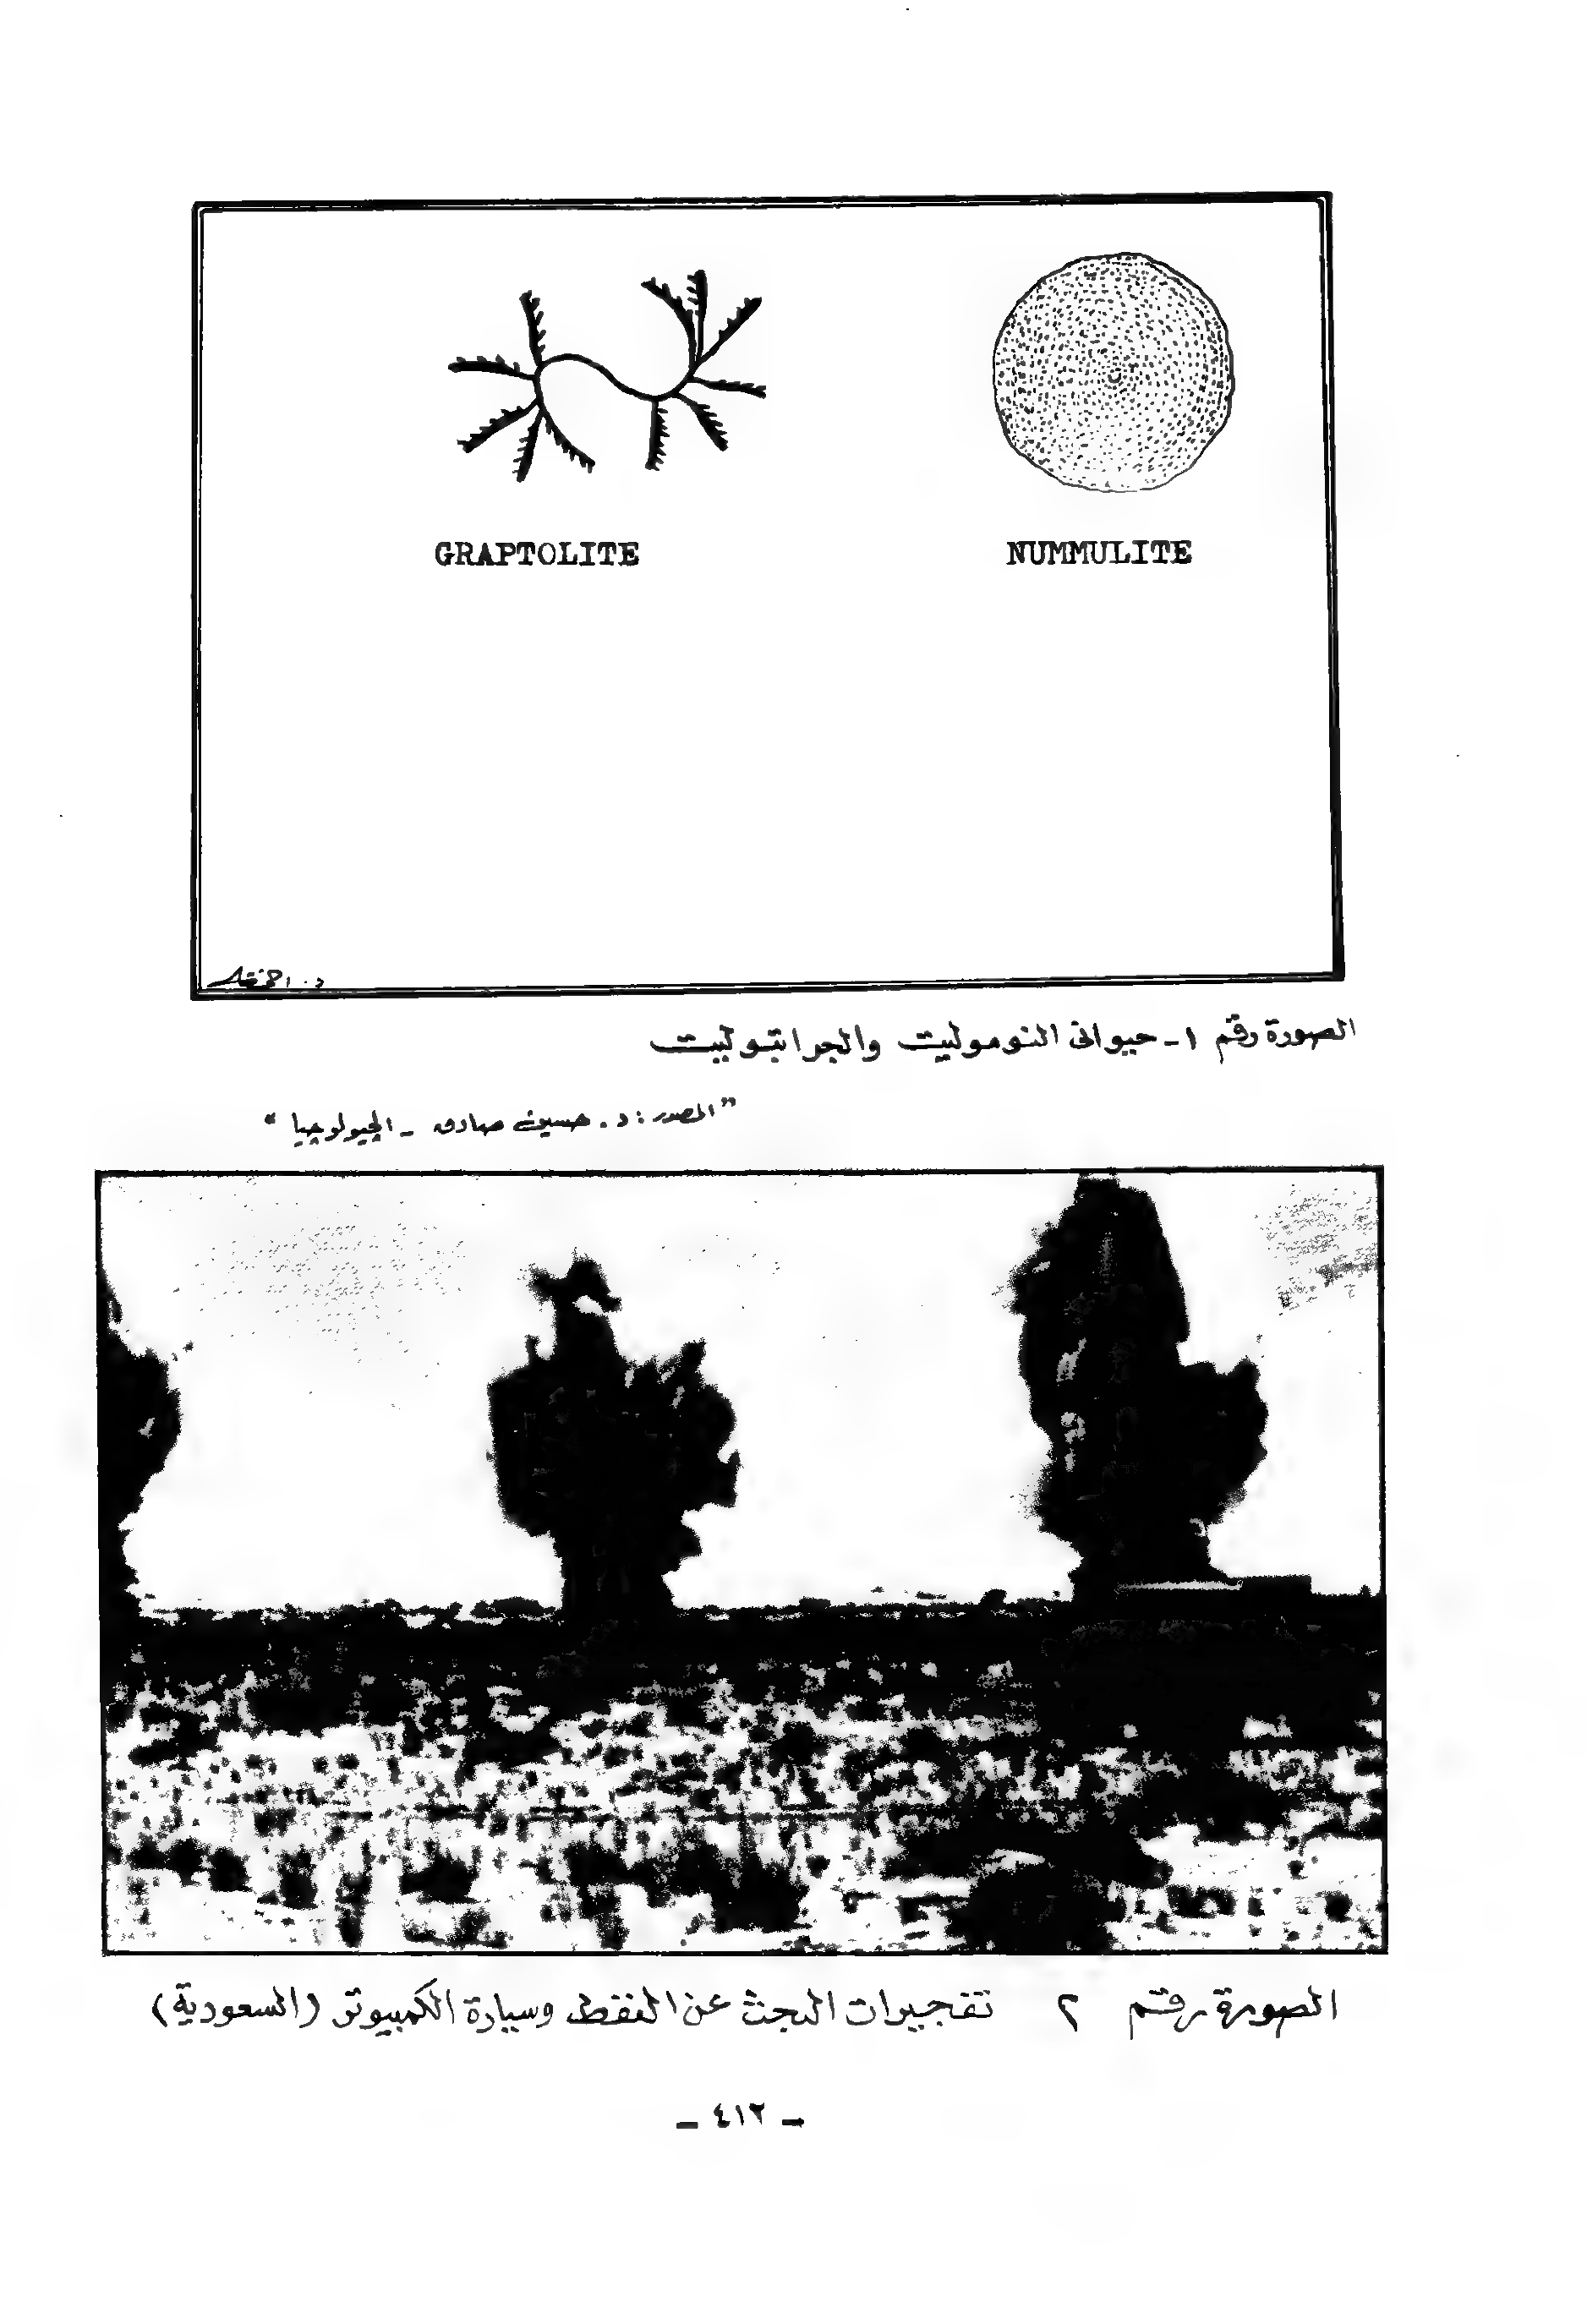 GRAPTOLITE NUMMULITE
د. احمد
الصورة رقم ١ - حيواني النوموليت والجرابتوليت
"المصدر: د. حسين صادق - الجيولوجيا"
الصورة رقم ٢ تفجيرات البحث عن النفط وسيارة الكمبيوتر (السعودية)
- ٤١٢ -